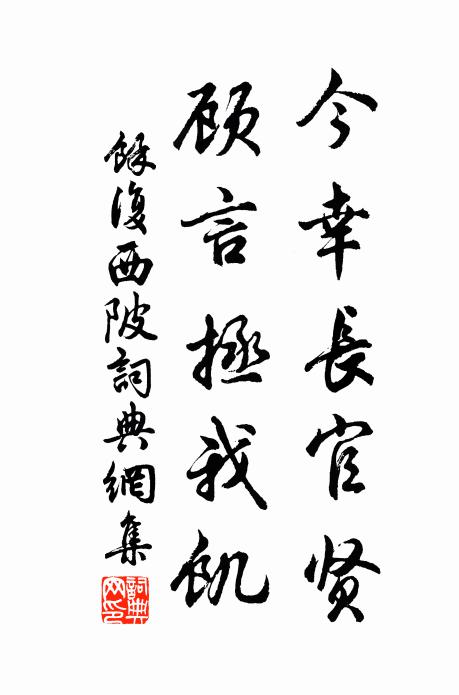 今幸長官贤
顾言拯我飢
餘復西陂詞典網集
詞典网印